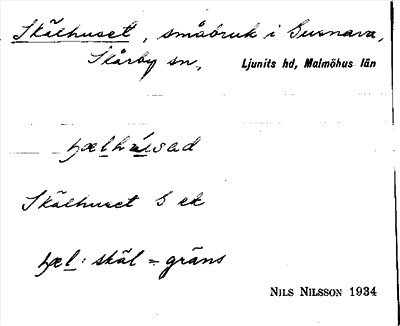 Skälhuset, småbruk i Gusnava,
Skårby sn, Ljunits hd, Malmöhus län
Skälhuset S ek
skäl = gräns
NILS NILSSON 1934